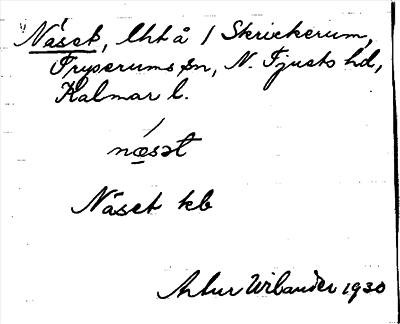 Näset, lht å / Skrickerum,
Fryserums sn, N. Tjusts hd,
Kalmar l.
næsət
Näset kb
Artur Urbander 1930